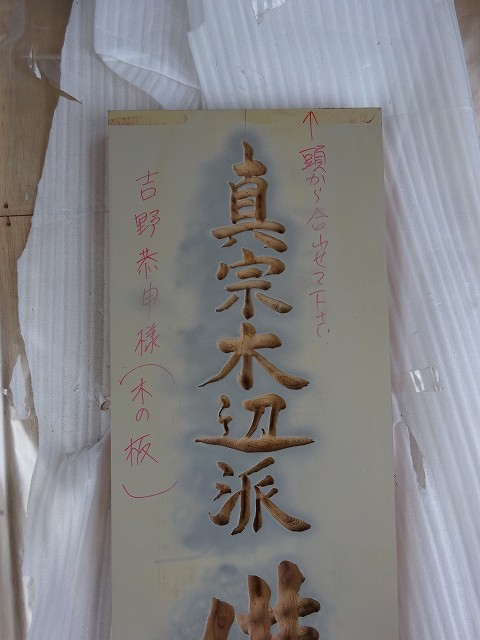 ↑頭から合わせて下さい
真宗木辺派
吉野恭申様(木の板)